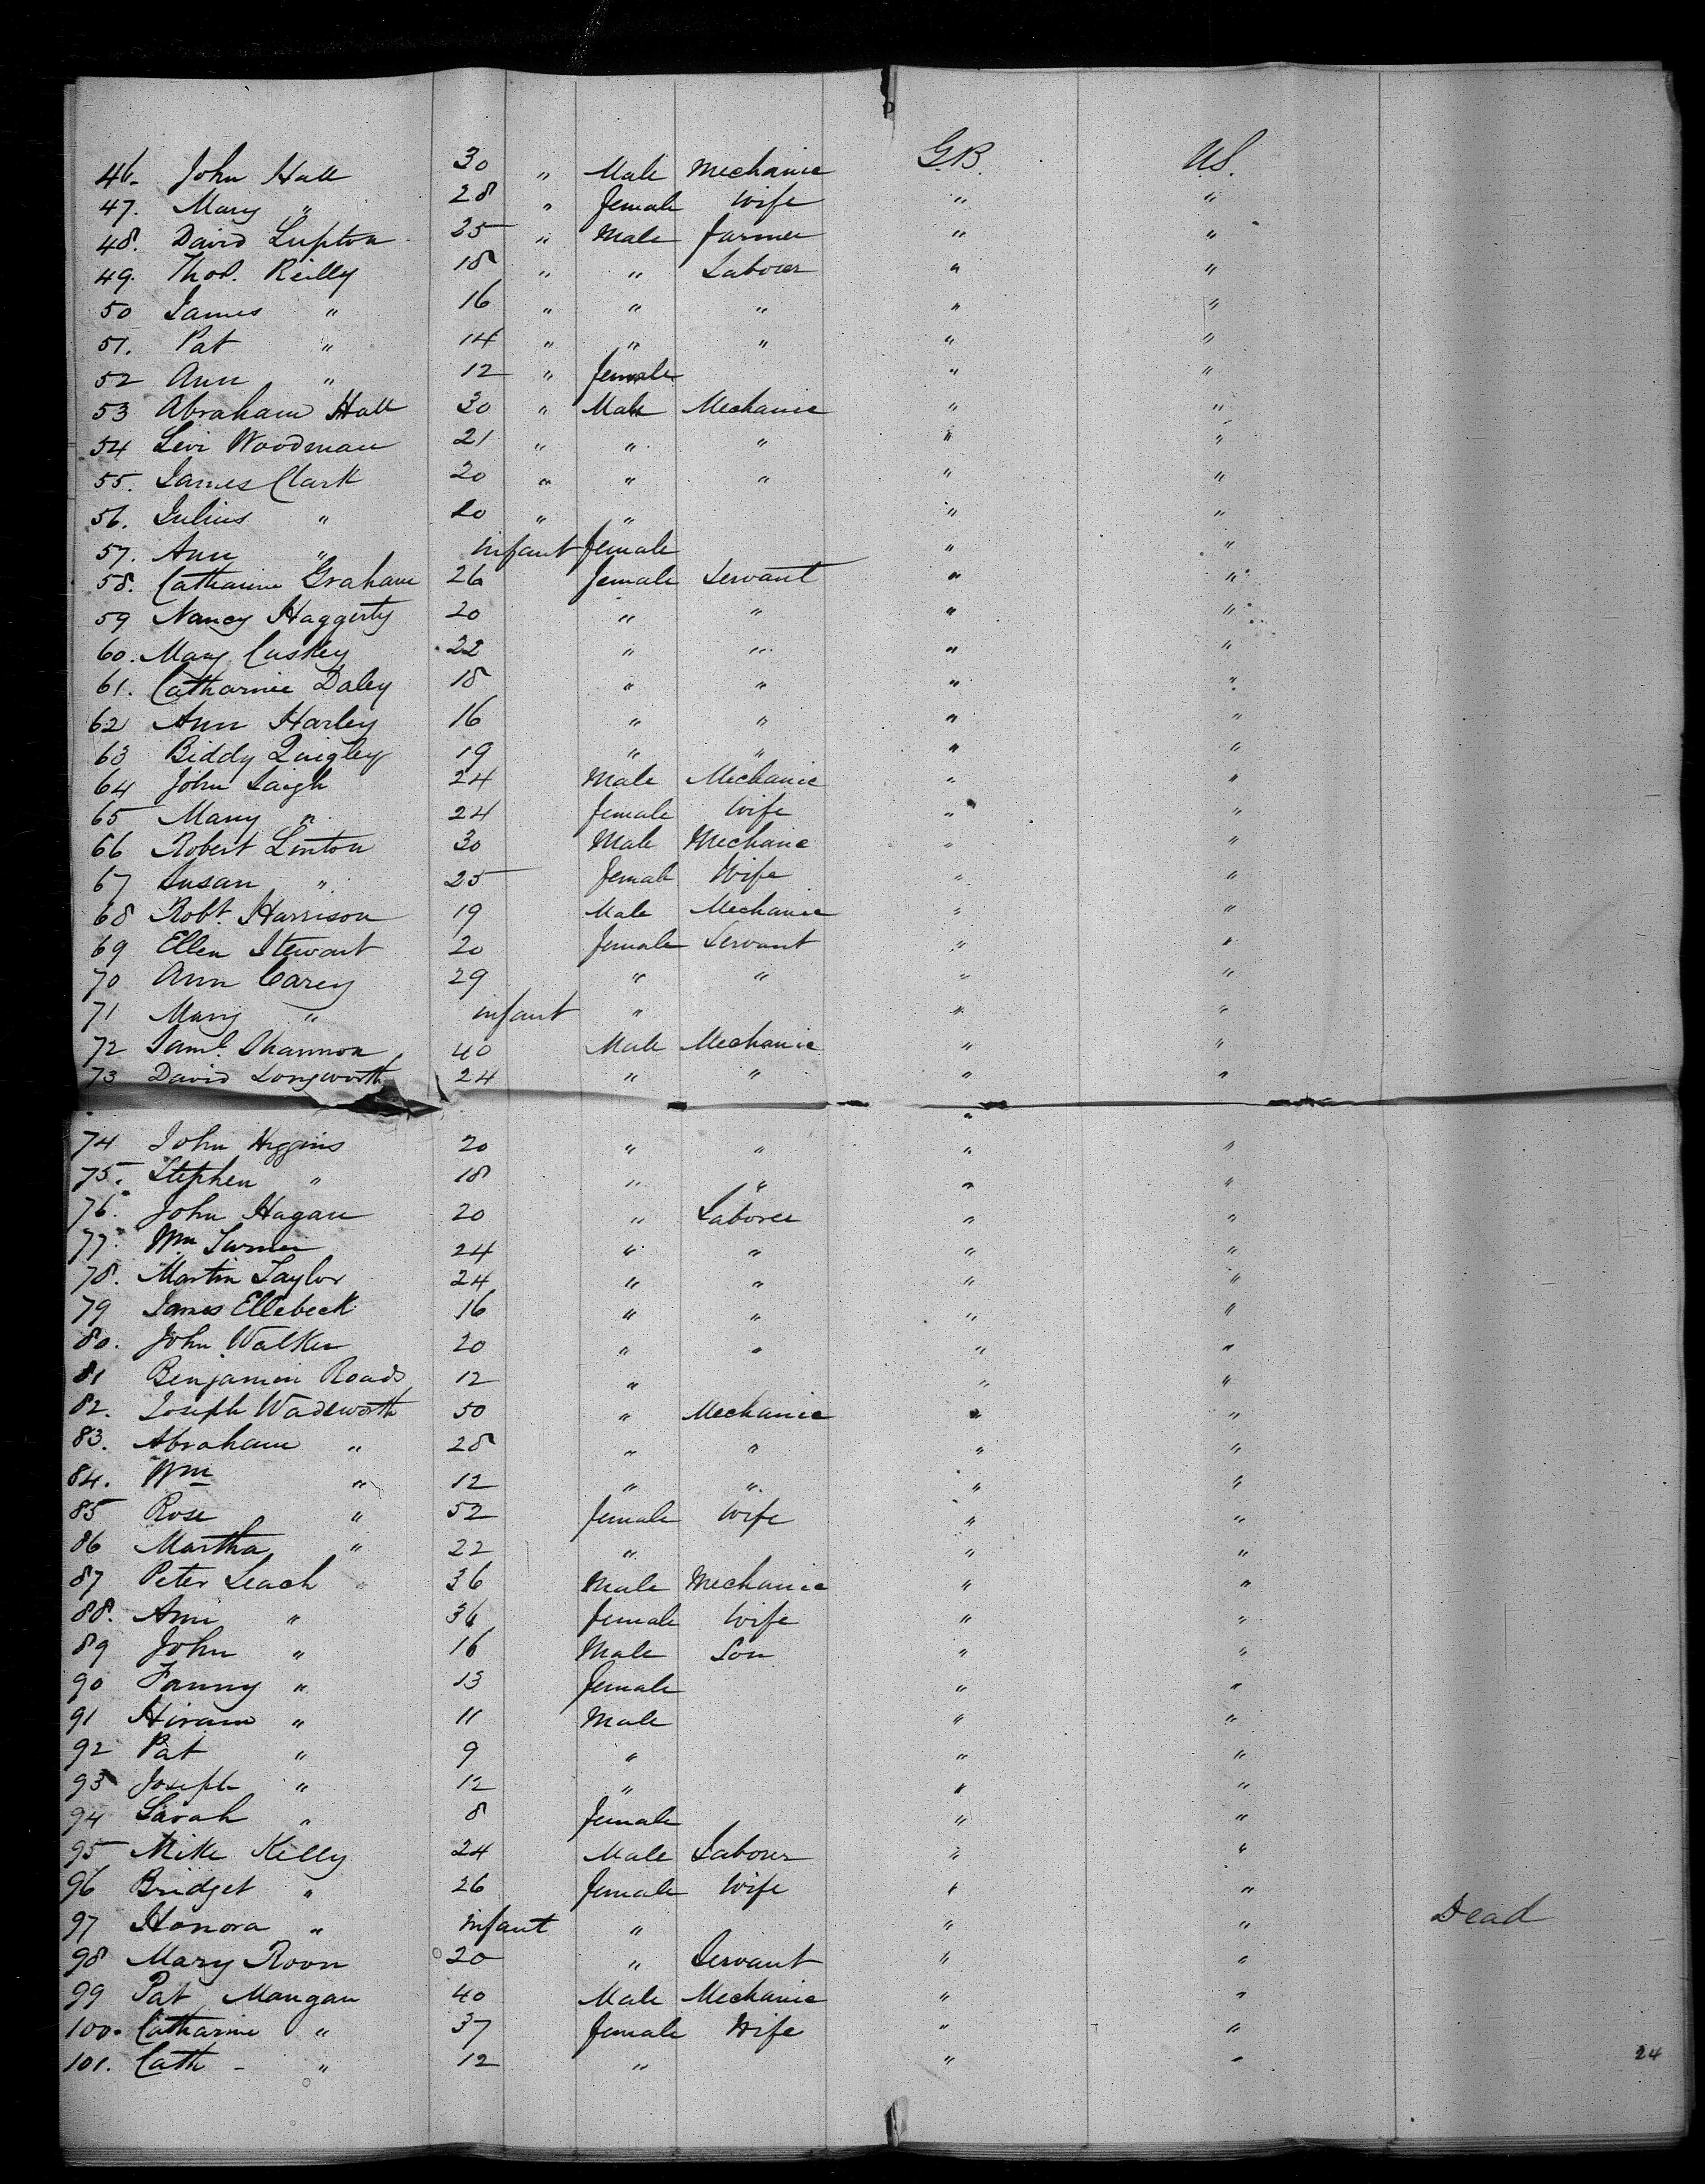 46. John Hall 30 " Male Mechanic G.B. U.S.
47. Mary " 28 " female Wife " "
48. David Lupton 25 " Male farmer " "
49. Thos. Reilly 18 " " Labourer " "
50 James " 16 " " " " "
51. Pat " 14 " " " " "
52 Ann " 12 " female " "
53 Abraham Hall 30 " Male Mechanic " "
54 Levi Woodman 21 " " " " "
55. James Clark 20 " " " " "
56. Julius " 20 " " " "
57. Ann " infant female " "
58. Catharine Graham 26 female Servant " "
59 Nancy Haggerty 20 " " " "
60. Mary Cuskey 22 " " " "
61. Catharine Daley 18 " " " "
62 Ann Harley 16 " " " "
63 Biddy Quigley 19 " " " "
64 John Saigh 24 Male Mechanic " "
65 Mary " 24 female Wife " "
66 Robert Linton 30 Male Mechanic " "
67 Susan " 25 female Wife " "
68 Robt. Harrison 19 Male Mechanic " "
69 Ellen Stewart 20 female Servant " "
70 Ann Carey 29 " " " "
71 Mary " infant " " "
72 Saml. Shannon 40 Male Mechanic " "
73 David Longworth 24 " " " "
74 John Higgins 20 " " " "
75. Stephen " 18 " " " "
76. John Hagan 20 " Laborer " "
77. Wm Turner 24 " " " "
78. Martin Taylor 24 " " " "
79 James Ellebeck 16 " " " "
80. John Walker 20 " " " "
81 Benjamin Roads 12 " " "
82. Joseph Wadsworth 50 " Mechanic " "
83. Abraham " 28 " " " "
84. Wm " 12 " " " "
85 Rose " 52 female Wife " "
86 Martha " 22 " " "
87 Peter Leach " 36 Male Mechanic " "
88. Ann " 36 female Wife " "
89 John " 16 Male Son " "
90 Fanny " 13 female " "
91 Hiram " 11 Male " "
92 Pat " 9 " " "
93 Joseph " 12 " " "
94 Sarah " 8 female " "
95 Mike Kelly 24 Male Labourer " "
96 Bridget " 26 female Wife " "
97 Honora " infant " " " Dead
98 Mary Roon 20 " Servant " "
99 Pat Mangan 40 Male Mechanic " "
100. Catharine " 37 female Wife " "
101. Cath - " 12 " " "
24